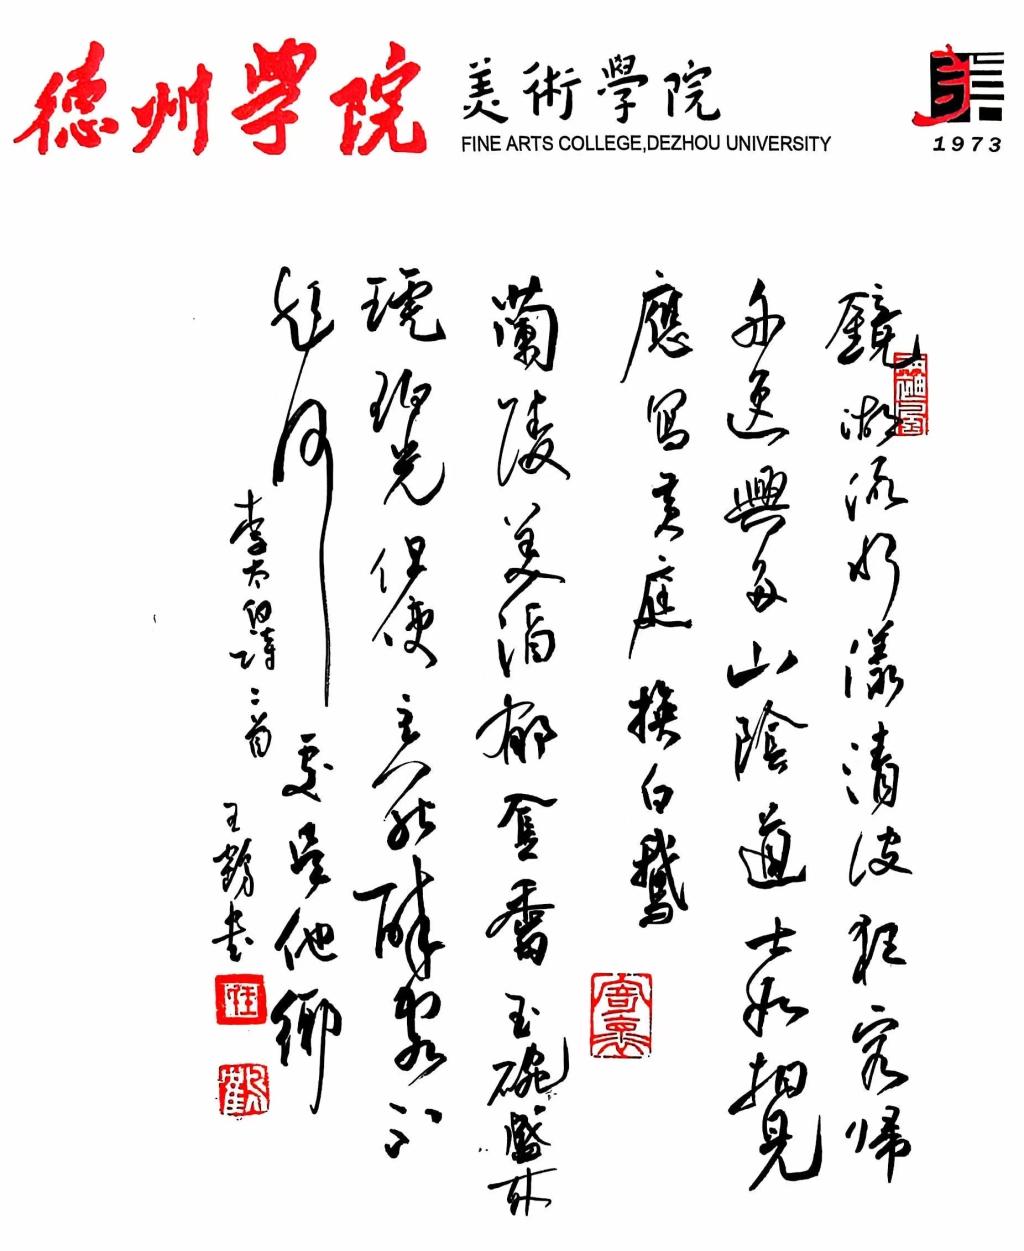 德州学院
美術學院
FINE ARTS COLLEGE,DEZHOU UNIVERSITY
1973
鏡湖流水漾清波狂客帰
舟逸興多山陰道士如相見
應寫黄庭換白鵝
蘭陵美酒郁金香玉碗盛来
琥珀光但使主人能醉客不
知何處是他鄉
李太白詩二首
王鶴書